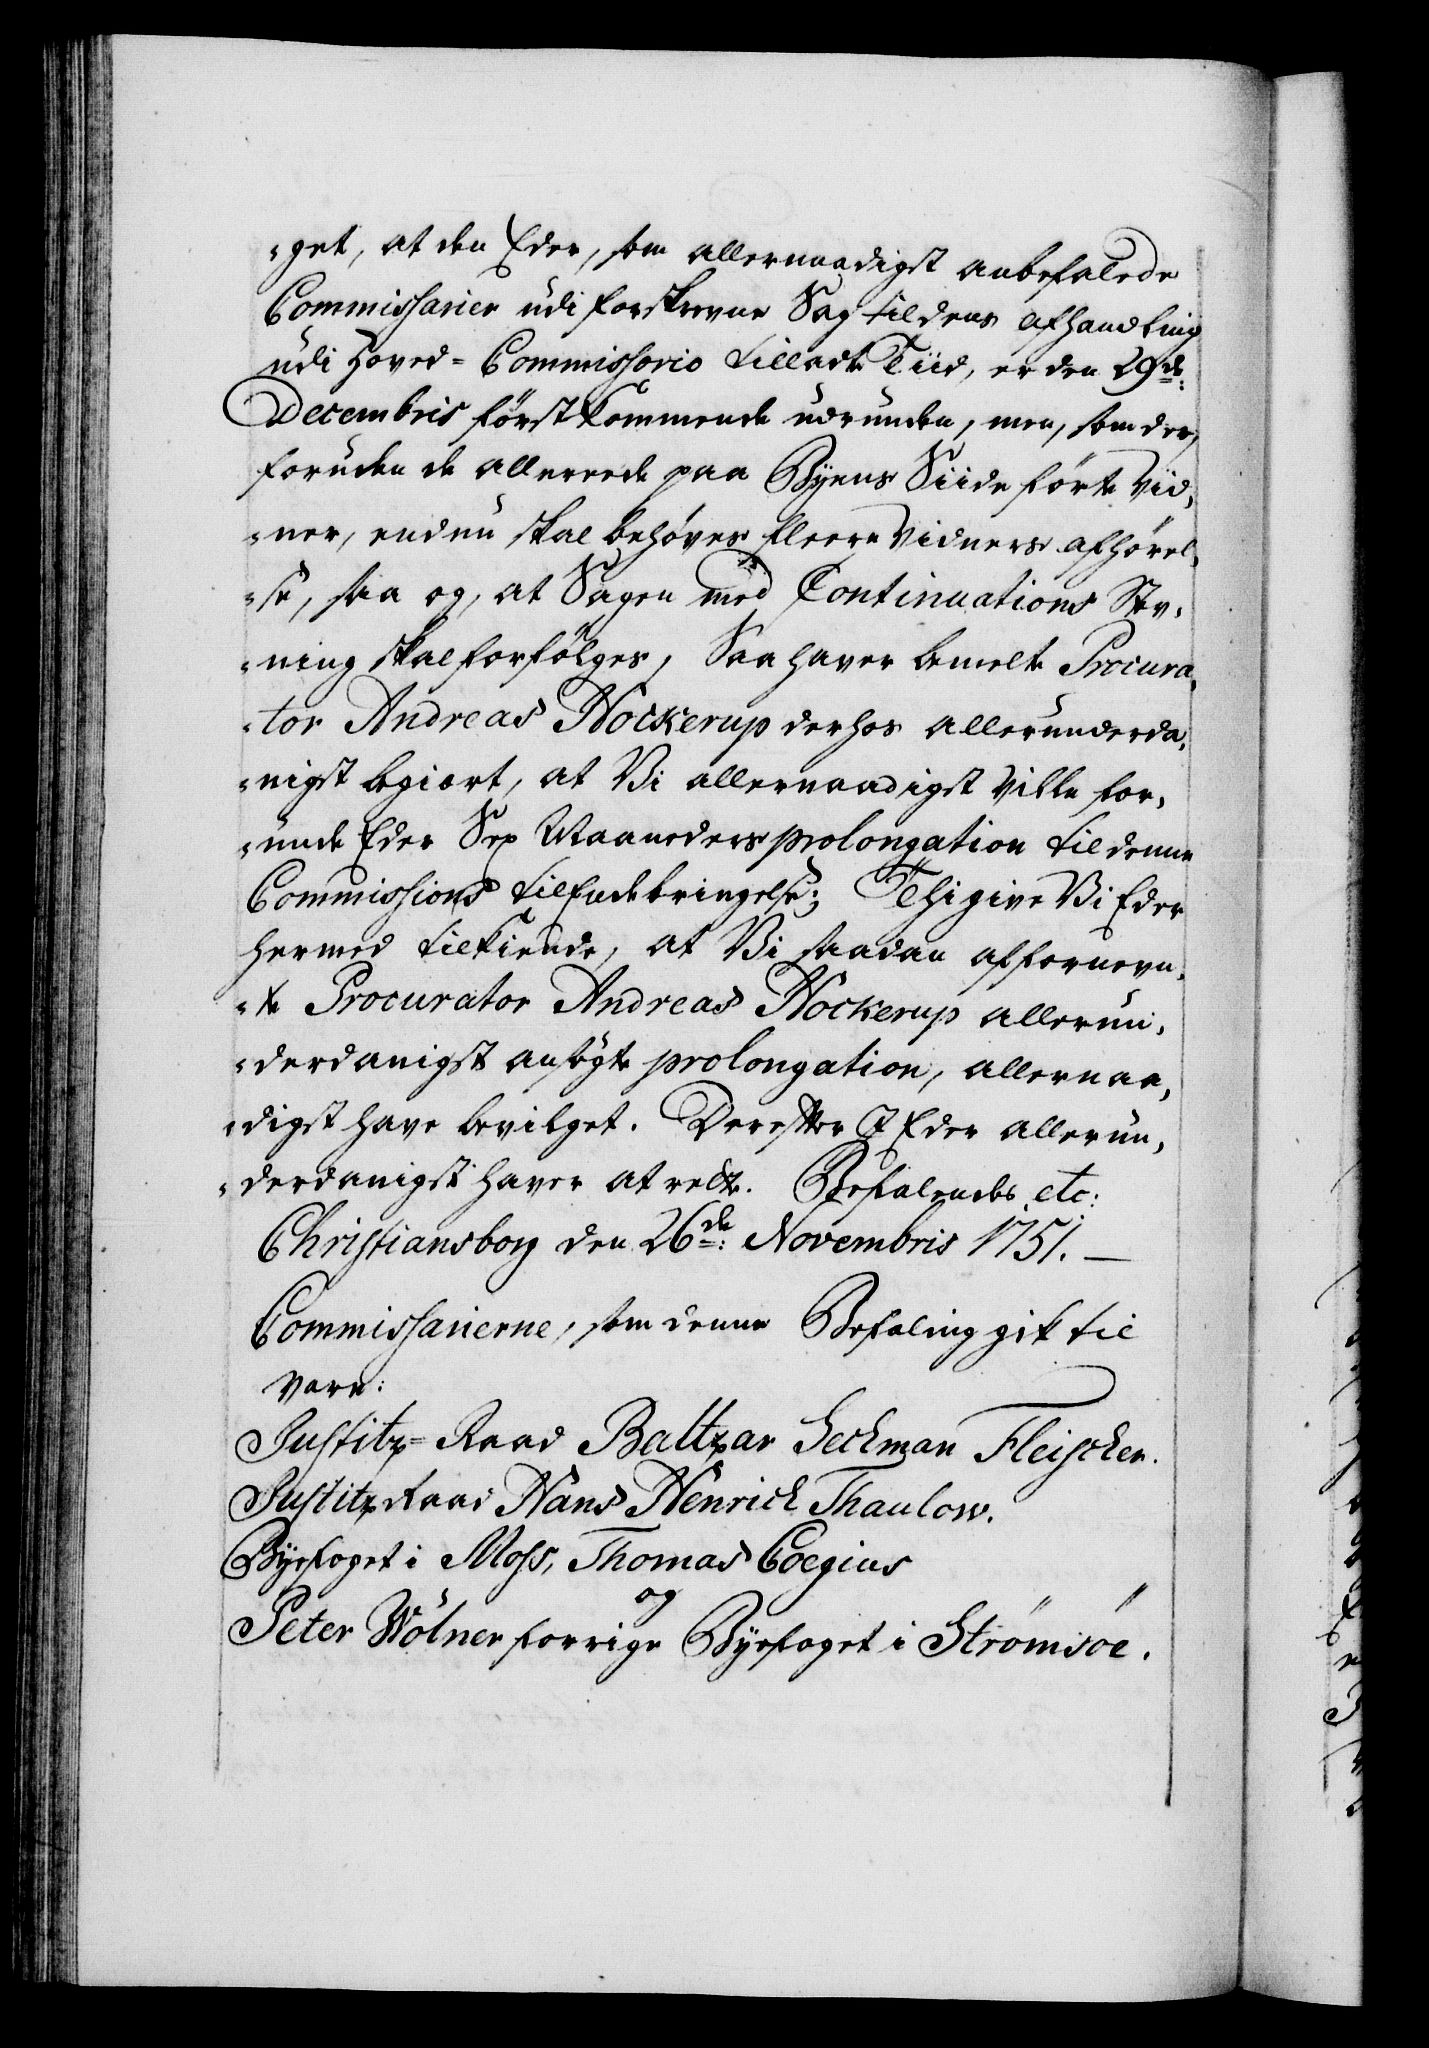 -get, at den Eder, som allernaadigst anbefalede
Commissarier udi forskrevne Sag til dens afhandling
udi Hoved- Commissorio tilladte Tiid, er den 29de:
Decembris førstkommende udrunden, men, som der,
foruden de allereede paa Byens Siide førte Vid,
-ner, endnu skal behøves fleere Vidners afhørel,
-se, saa og, at Sagen med Continuations Stev,
-ning skal forfølges, Saa haver bemelte Procura,
-tor Andreas Höckerup derhos allerunderda,
-nigst begiært, at Vi allernaadigst Ville for,
-unde Eder Sex Maaneders prolongation til denne
Commissions tilEndebringelse; Thi give Vi Eder
hermed tilkiende, at Vi saadan af fornevn,
-te Procurator Andreas Höckerup allerun,
-derdanigst ansøgte prolongation, allernaa,
-digst have bevilget. Derefter I Eder allerun,
-derdanigst haver at rette. Befalendes etc:
Christiansborg den 26de: Novembris 1751. —
Commissarierne, som denne Befaling gik til
vare:
Justitz- Raad Baltzar Sechman Fleischer.
Justitz Raad Hans Henrich Thaulow.
Byefoget i Moss, Thomas Coegius
og
Peter Wölner forrige Byefoget i Strømsöe.